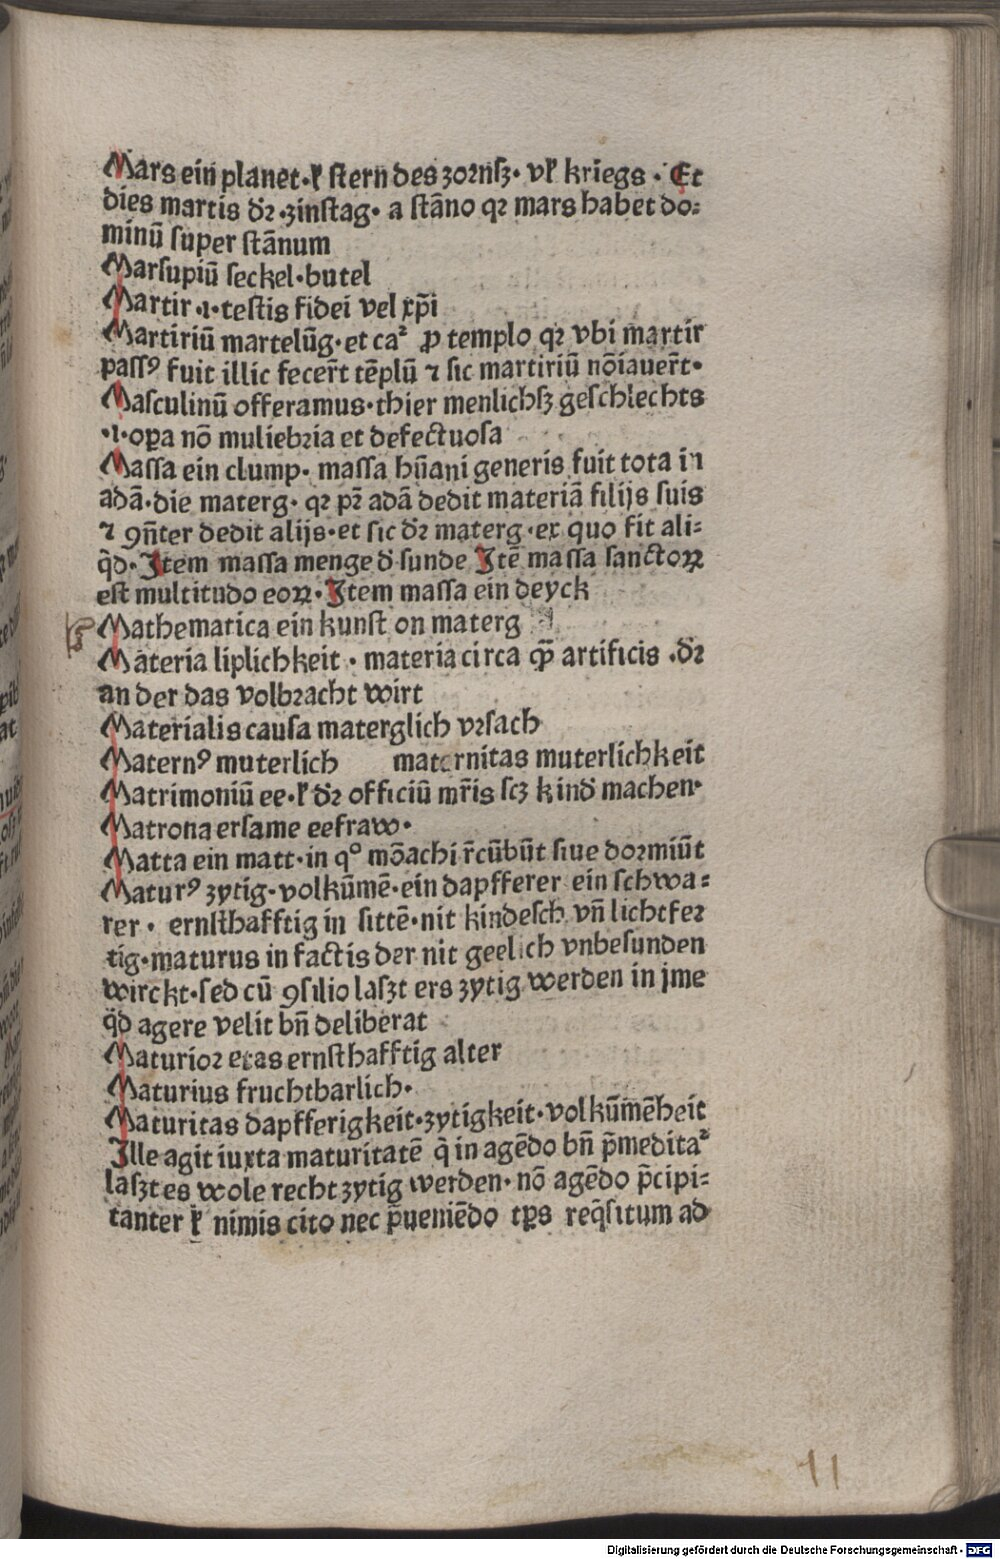 Mars ein planet·ł ſtern des zoꝛnſʒ· vł kriegs · Et
dies martis dꝛ̄ ·zinſtag· a ſtāno qꝛ mars habet do⸗
minū ſuper ſtānum
Marſupiū ſeckel·butel
Martir ·i·teſtis fidei vel xp̄i
Martiriū martelūg·et caꝛ ꝓ templo qꝛ vbi martir
paſſꝰ fuit illic fecer̄t tēplū ⁊ ſic martiriū nōīauer̄t·
Maſculinū offeramus·thier menlichſʒ geſchlechts
·i·oꝑa nō muliebꝛia et defectuoſa
Maſſa ein clump· maſſa hūani generis fuit tota in
adā·die materg· qꝛ pꝛ̄ adā dedit materiā filijs ſuis
⁊ ꝯn̄ter dedit alijs·et ſic dꝛ̄ materg·ex quo fit ali⸗
q̇d·Item maſſa menge d̄ ſunde Itē maſſa ſanctoꝝ
eſt multitudo eoꝝ·Item maſſa ein deyck
Mathematica ein kunſt on materg
Māteria liplichkeit · materia circa qm̄ artificis ·dꝛ̄
an der das volbꝛacht wirt
Materialis cauſa materglich vꝛſach
Maternꝰ muterlich maternitas muterlichkeit
Matrimoniū ee·ł dꝛ̄ officiū mr̄is ſcʒ kind̄ machen·
Matrona erſame eefraw·
Matta ein matt·in qͦ mōachi r̄cūbūt ſiue doꝛmiūt
Maturꝰ zytig·volkūmē·ein dapfferer ein ſchwa⸗
rer · ernſthafftig in ſittē·nit kindeſch vn̄ lichtfeꝛ
tig·maturus in factis der nit geelich vnbeſunden
wirckt·ſed cū ꝯſilio laſzt ers zytig werden in jme
q̇d agere velit bn̄ deliberat
Maturioꝛ etas ernſthafftig alter
Maturius fruchtbarlich·
Maturitas dapfferigkeit·zytigkeit·volkūmēheit
Ille agit iuxta maturitatē q̇ in agēdo bn̄ p̄meditaꝛ
laſzt es wole recht zytig werden· nō agēdo p̄cipi⸗
tanter ł nimis cito nec p̄ueniēdo tꝑs req̇ſitum ad
11
Digitalisierung gefördert durch die Deutsche Forschungsgemeinschaft · DFG